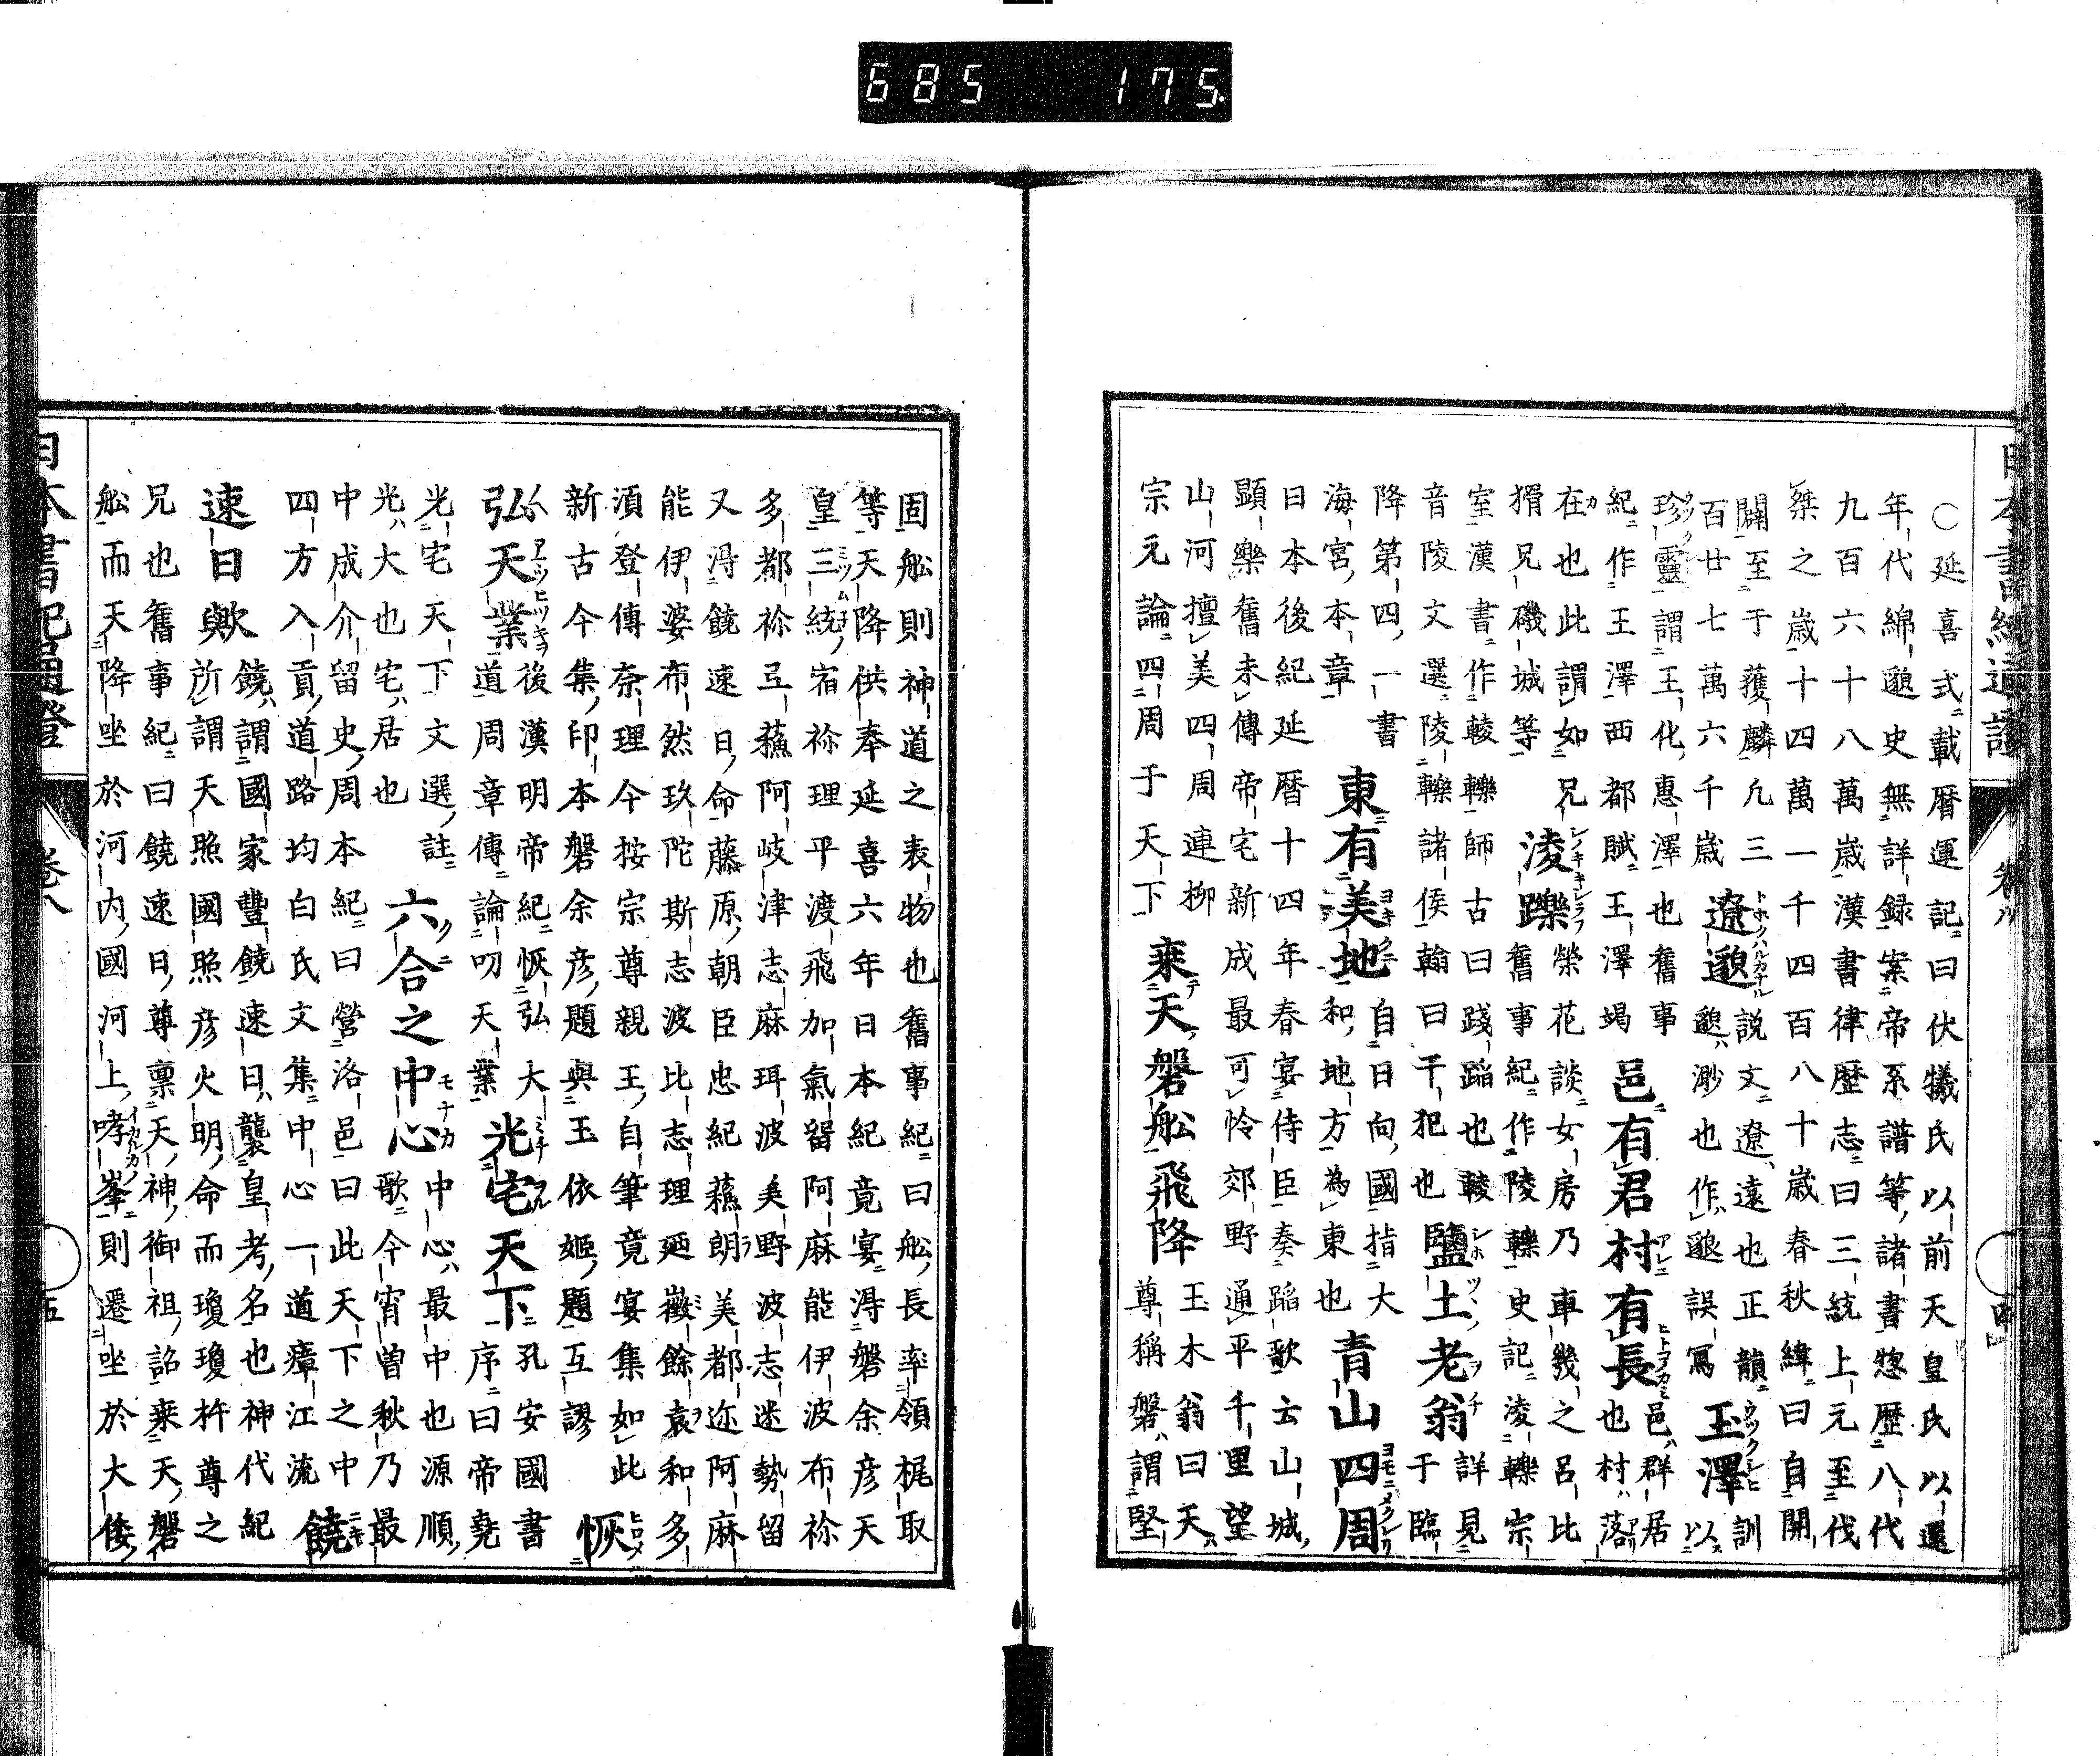 685 175.
日本書紀通證
卷八
〇延喜式載暦運記曰伏犧氏以前天皇氏以還
年代綿邈史無詳録案帝系譜等諸書惣歴八代
九百六十八萬歳漢書律歴志曰三統上元至伐
桀之歳十四萬一千四百八十歳春秋緯曰自開
闢至于獲麟凢三
百廿七萬六千歳
遼邈
説文遼遠也正韻
邈渺也作邈誤寫
玉澤
訓
以
珍靈謂王化惠澤也舊事
紀作王澤西都賦王澤竭
邑有君村有長
邑群居
也村落
在也此謂如兄
猾兄磯城等
淩躒
榮花談女房乃車幾之呂比
舊事紀作陵轢史記淩轢宗
室漢書作輘轢師古曰踐蹈也輘
音陵文選陵轢諸侯翰曰干犯也
鹽土老翁
詳見
于臨
降第四一書
海宮本章
東有美地
自日向國指大
和地方為東也
青山四周
日本後紀延暦十四年春宴侍臣奏蹈歌云山城
顕樂舊来傳帝宅新成最可怜郊野通平千里望
山河擅美四周連柳
宗元論四周于天下
乘天磐舩飛降
玉木翁曰天
尊稱磐謂堅
固舩則神道之表物也舊事紀曰舩長率領梶取
等天降供奉延喜六年日本紀竟宴得磐余彦天
皇三統宿祢理平渡飛加氣留阿麻能伊波布祢
多都祢弖蘓阿岐津志麻珥波美野波志迷勢留
又得饒速日命藤原朝臣忠紀蘓朗美都迩阿麻
能伊婆布然玖陀斯志波比志理廼徴餘袁和多
湏登傳奈理今按宗尊親王自筆竟宴集如此
新古今集印本磐余彦題與玉依姫題互謬
恢
弘天業
後漢明帝紀恢弘大
道周章傳論叨天業
光宅天下
孔安國書
序曰帝堯
光宅天下文選註
光大也宅居也
六合之中心
中心最中也源順
歌今宵曽秋乃最
中成介留史周本紀曰營洛邑曰此天下之中
四方入貢道路均白氏文集中心一道瘴江流
饒
速日歟
饒謂國家豐饒速日襲皇考名也神代紀
所謂天照國照彦火明命而瓊瓊杵尊之
兄也舊事紀曰饒速日尊禀天神御祖詔乗天磐
舩而天降坐於河内國河上哮峯則遷坐於大倭
日本書紀通證
卷八
五